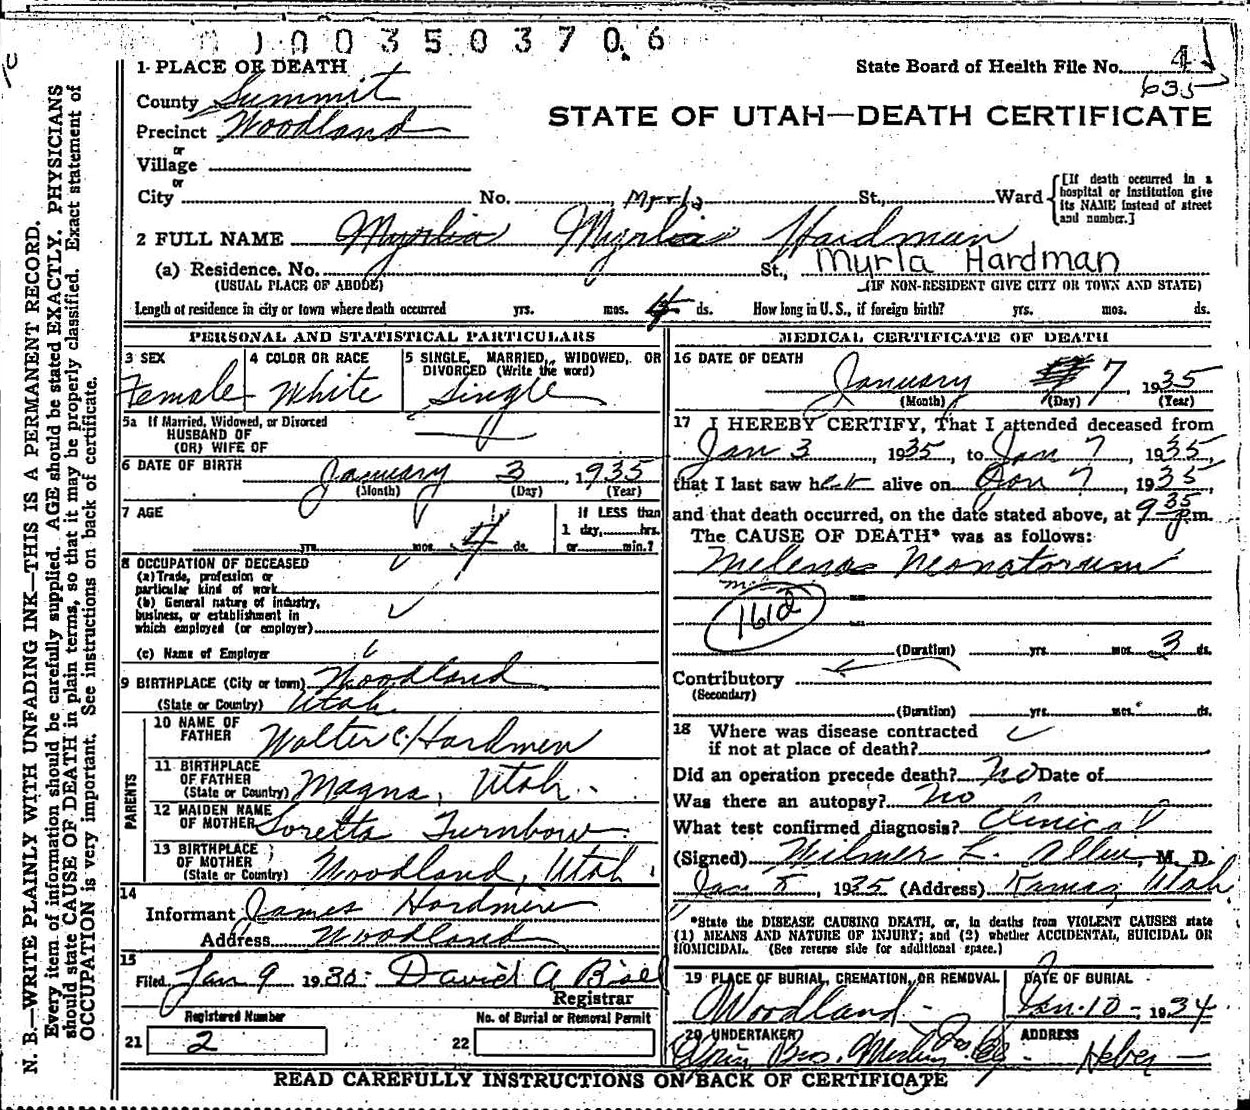 0 1 0 0 3 5 0 3 7 0 6
1- PLACE OF DEATH
State Board of Health File No. 4
635
County Summit
STATE OF UTAH—DEATH CERTIFICATE
Precinct Woodland
or
Village
or
City No. St., Ward
[If death occurred in a hospital or institution give its NAME instead of street and number.]
Myrla
2 FULL NAME Myrlia Myrlia Hardman
(a) Residence. No. St., Myrla Hardman
(USUAL PLACE OF ABODE) (IF NON-RESIDENT GIVE CITY OR TOWN AND STATE)
Length of residence in city or town where death occurred yrs. mos. 4 ds. How long in U. S., if foreign birth? yrs. mos. ds.
PERSONAL AND STATISTICAL PARTICULARS
3 SEX Female
4 COLOR OR RACE White
5 SINGLE, MARRIED, WIDOWED, OR DIVORCED (Write the word) Single
5a If Married, Widowed, or Divorced
HUSBAND OF
(OR) WIFE OF
6 DATE OF BIRTH January 3, 1935
(Month) (Day) (Year)
7 AGE yrs. mos. 4 ds.
If LESS than
1 day, hrs.
or min.?
8 OCCUPATION OF DECEASED
(a) Trade, profession or
particular kind of work
(b) General nature of industry,
business, or establishment in
which employed (or employer)
(c) Name of Employer
9 BIRTHPLACE (City or town) Woodland
(State or Country) Utah.
PARENTS
10 NAME OF FATHER Walter C. Hardmen
11 BIRTHPLACE OF FATHER (State or Country) Magna, Utah.
12 MAIDEN NAME OF MOTHER Loretta Turnbow.
13 BIRTHPLACE OF MOTHER (State or Country) Woodland, Utah.
14
Informant James Hardmen
Address Woodland
15
Filed Jan 9 1930 David A
Registrar
Registered Number
No. of Burial or Removal Permit
21 2
22
MEDICAL CERTIFICATE OF DEATH
16 DATE OF DEATH
January 7, 1935
(Month) (Day) (Year)
17 I HEREBY CERTIFY, That I attended deceased from
Jan 3, 1935, to Jan 7, 1935,
that I last saw her alive on Jan 7, 1935,
and that death occurred, on the date stated above, at 9 35 p.m.
The CAUSE OF DEATH* was as follows:
Melena Neonatorum
161d
(Duration) yrs. mos. 3 ds.
Contributory
(Secondary)
(Duration) yrs. mos. ds.
18 Where was disease contracted
if not at place of death?
Did an operation precede death? No Date of
Was there an autopsy? No
What test confirmed diagnosis? Clinical
(Signed) Wilmer L. Allen, M. D.
Jan 8, 1935 (Address) Kamas, Utah
*State the DISEASE CAUSING DEATH, or, in deaths from VIOLENT CAUSES state
(1) MEANS AND NATURE OF INJURY; and (2) whether ACCIDENTAL, SUICIDAL OR
HOMICIDAL. (See reverse side for additional space.)
19 PLACE OF BURIAL, CREMATION, OR REMOVAL
Woodland
DATE OF BURIAL
Jan. 10, 1934
20 UNDERTAKER
Bros.
ADDRESS
Heber
READ CAREFULLY INSTRUCTIONS ON BACK OF CERTIFICATE
N. B.—WRITE PLAINLY WITH UNFADING INK—THIS IS A PERMANENT RECORD.
Every item of information should be carefully supplied. AGE should be stated EXACTLY. PHYSICIANS
should state CAUSE OF DEATH in plain terms, so that it may be properly classified. Exact statement of
OCCUPATION is very important. See instructions on back of certificate.